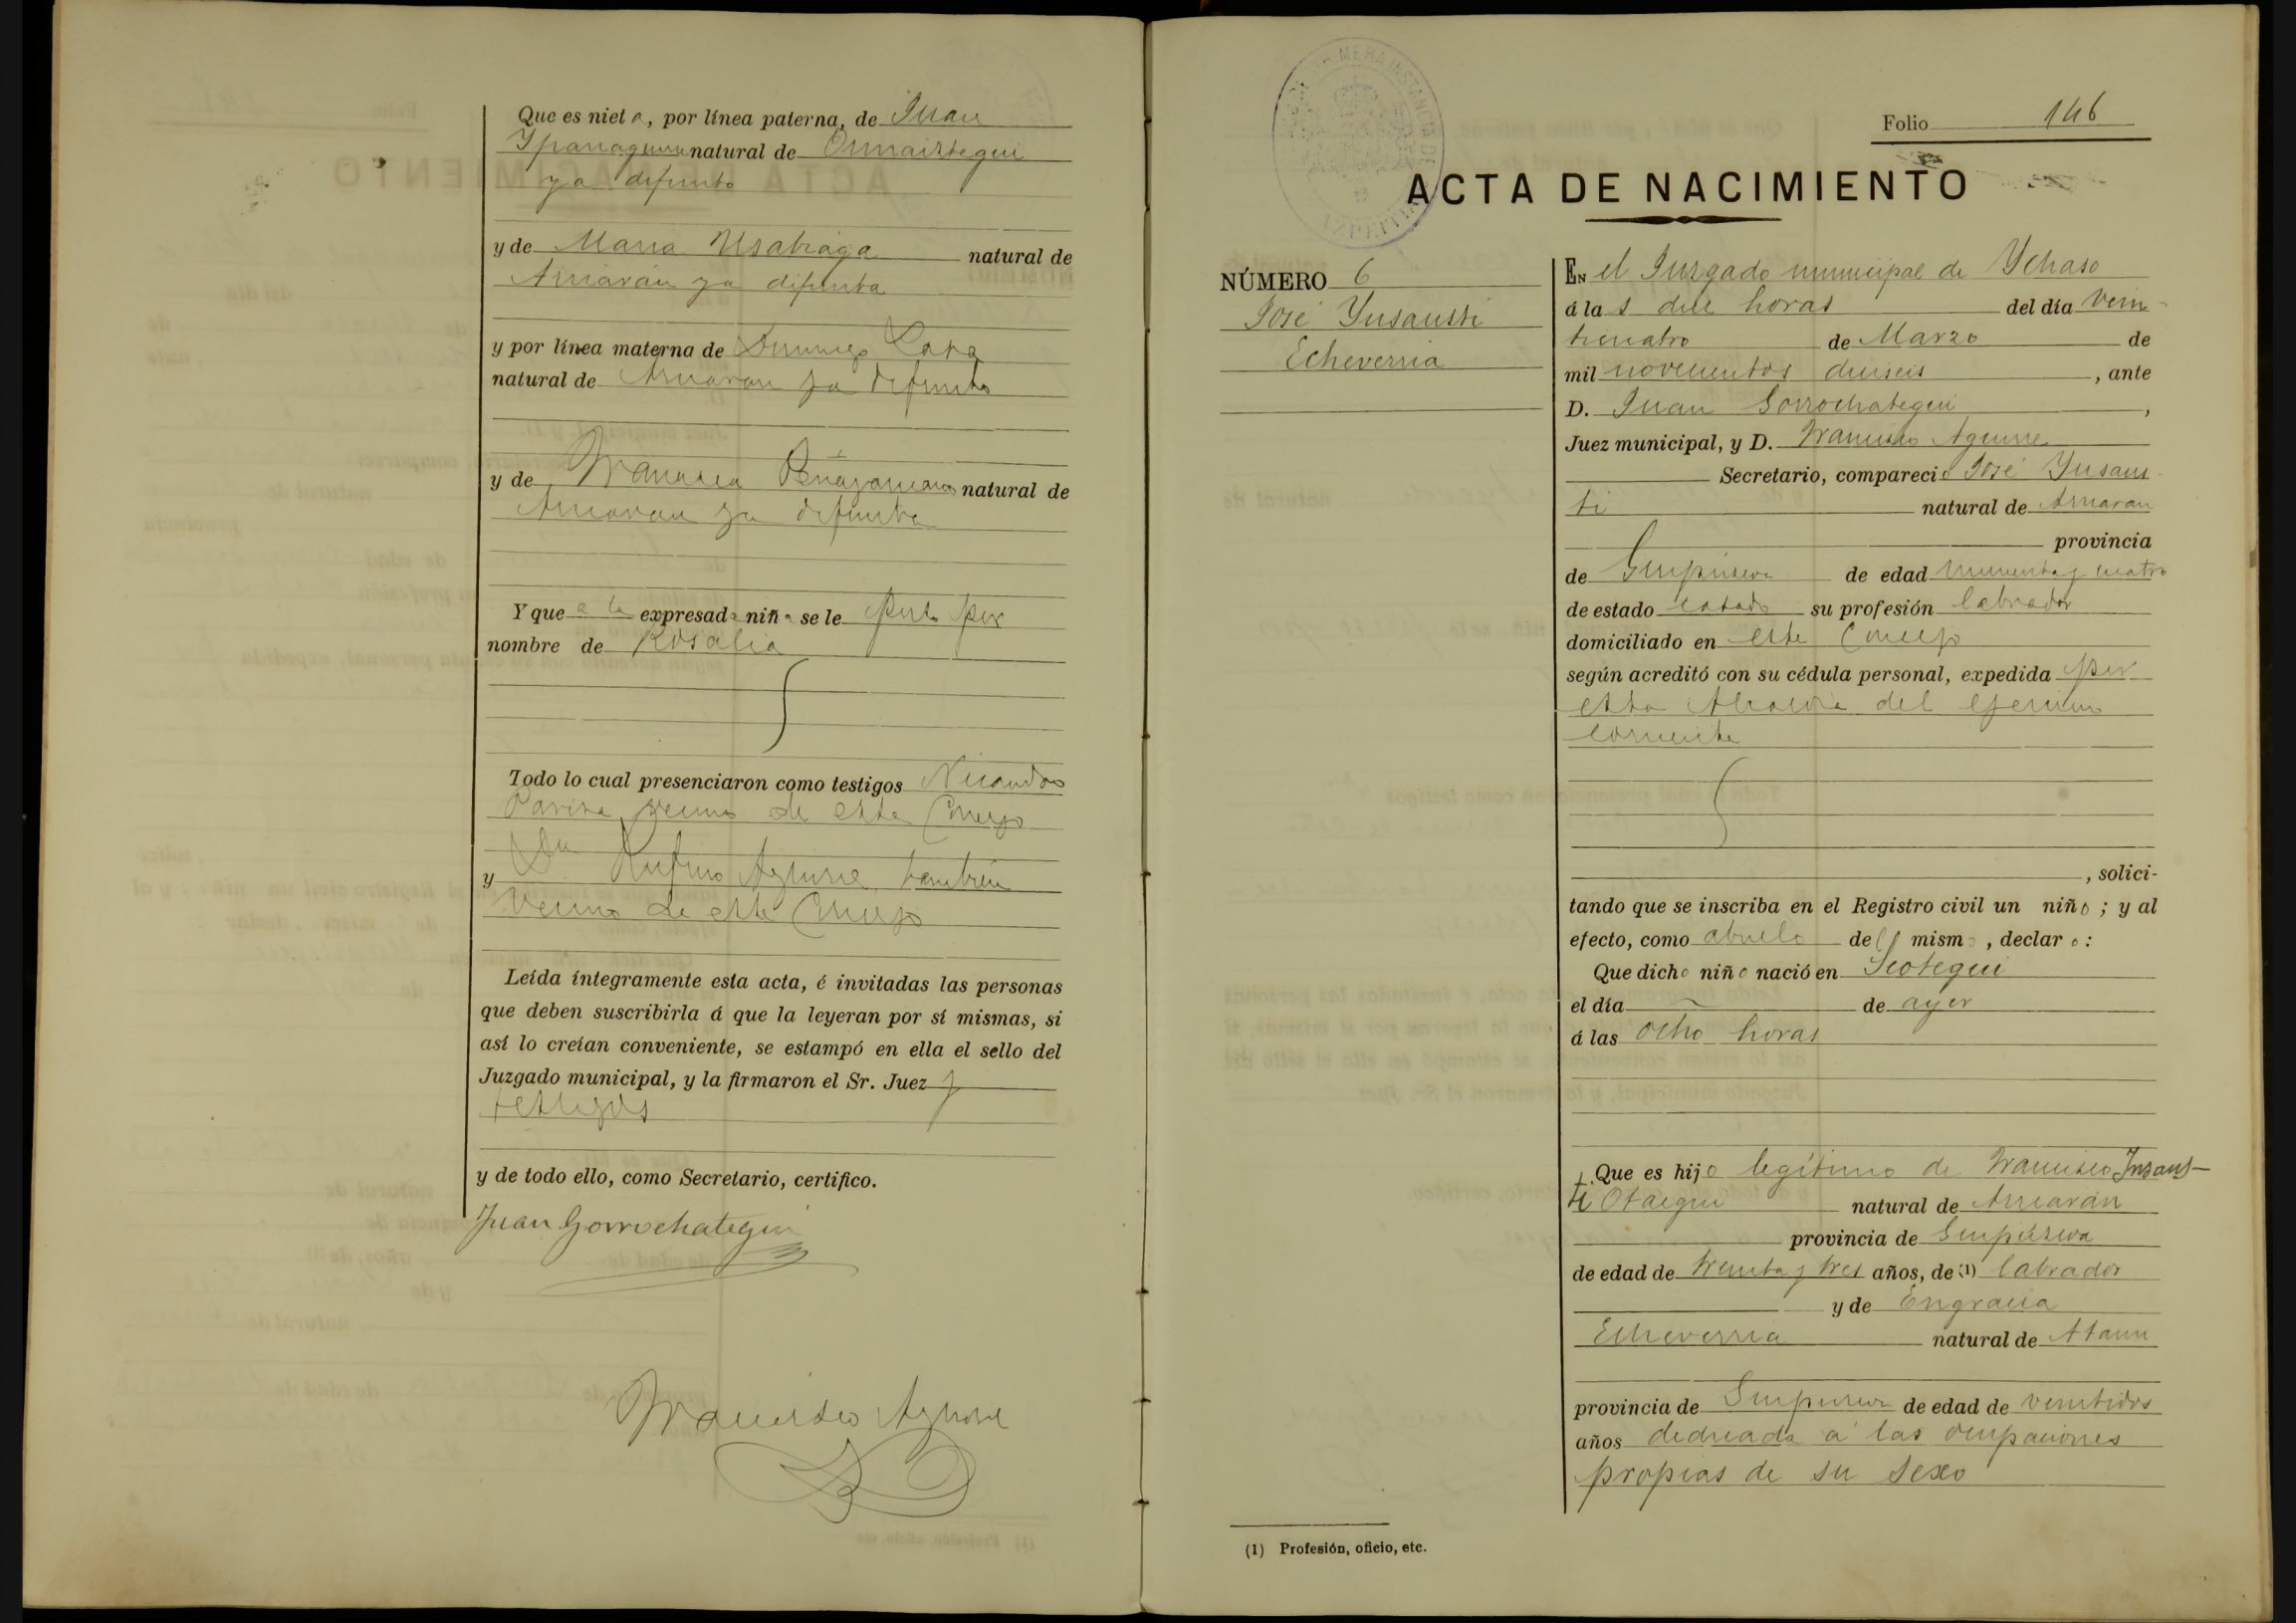 Que es nieta, por línea paterna, de Juan
natural de Ormaiztegui
ya difunto
y de Maria Usabiaga natural de
Arriarán ya difunta
y por línea materna de Domingo
natural de Arriaran ya difunto
y de Francisca natural de
Arriaran ya difunta
Y que a la expresada niña se le puso por
nombre de Rosalia
Todo lo cual presenciaron como testigos Nicandro
vecino de este Concejo
y Rufino Aguirre también
vecino de este Concejo
Leída íntegramente esta acta, é invitadas las personas
que deben suscribirla á que la leyeran por sí mismas, si
así lo creían conveniente, se estampó en ella el sello del
Juzgado municipal, y la firmaron el Sr. Juez y
testigos
y de todo ello, como Secretario, certifico.
Juan Gorrochategui
Francisco Aguirre
Folio 146
ACTA DE NACIMIENTO
NÚMERO 6
José Ynsausti
Echeverria
EN el Juzgado municipal de Ychaso
á las diez horas del día vein-
ticuatro de Marzo de
mil novecientos dieciseis, ante
D. Juan Gorrochategui,
Juez municipal, y D. Francisco Aguirre
Secretario, compareció José Ynsaus-
ti natural de Arriaran
provincia
de Guipúzcoa de edad y cuatro
de estado casado su profesión labrador
domiciliado en este Concejo
según acreditó con su cédula personal, expedida por
esta Alcaldía del ejercicio
corriente
, solici-
tando que se inscriba en el Registro civil un niño; y al
efecto, como abuelo del mismo, declaro:
Que dicho niño nació en
el día de ayer
á las ocho horas
Que es hijo legítimo de Francisco Insaus-
ti Otaegui natural de Arriarán
provincia de Guipúzcoa
de edad de treinta y tres años, de (1) labrador
y de Engracia
Echeverria natural de Ataun
provincia de Guipuzcoa de edad de veintidos
años dedicada á las ocupaciones
propias de su sexo
(1) Profesión, oficio, etc.